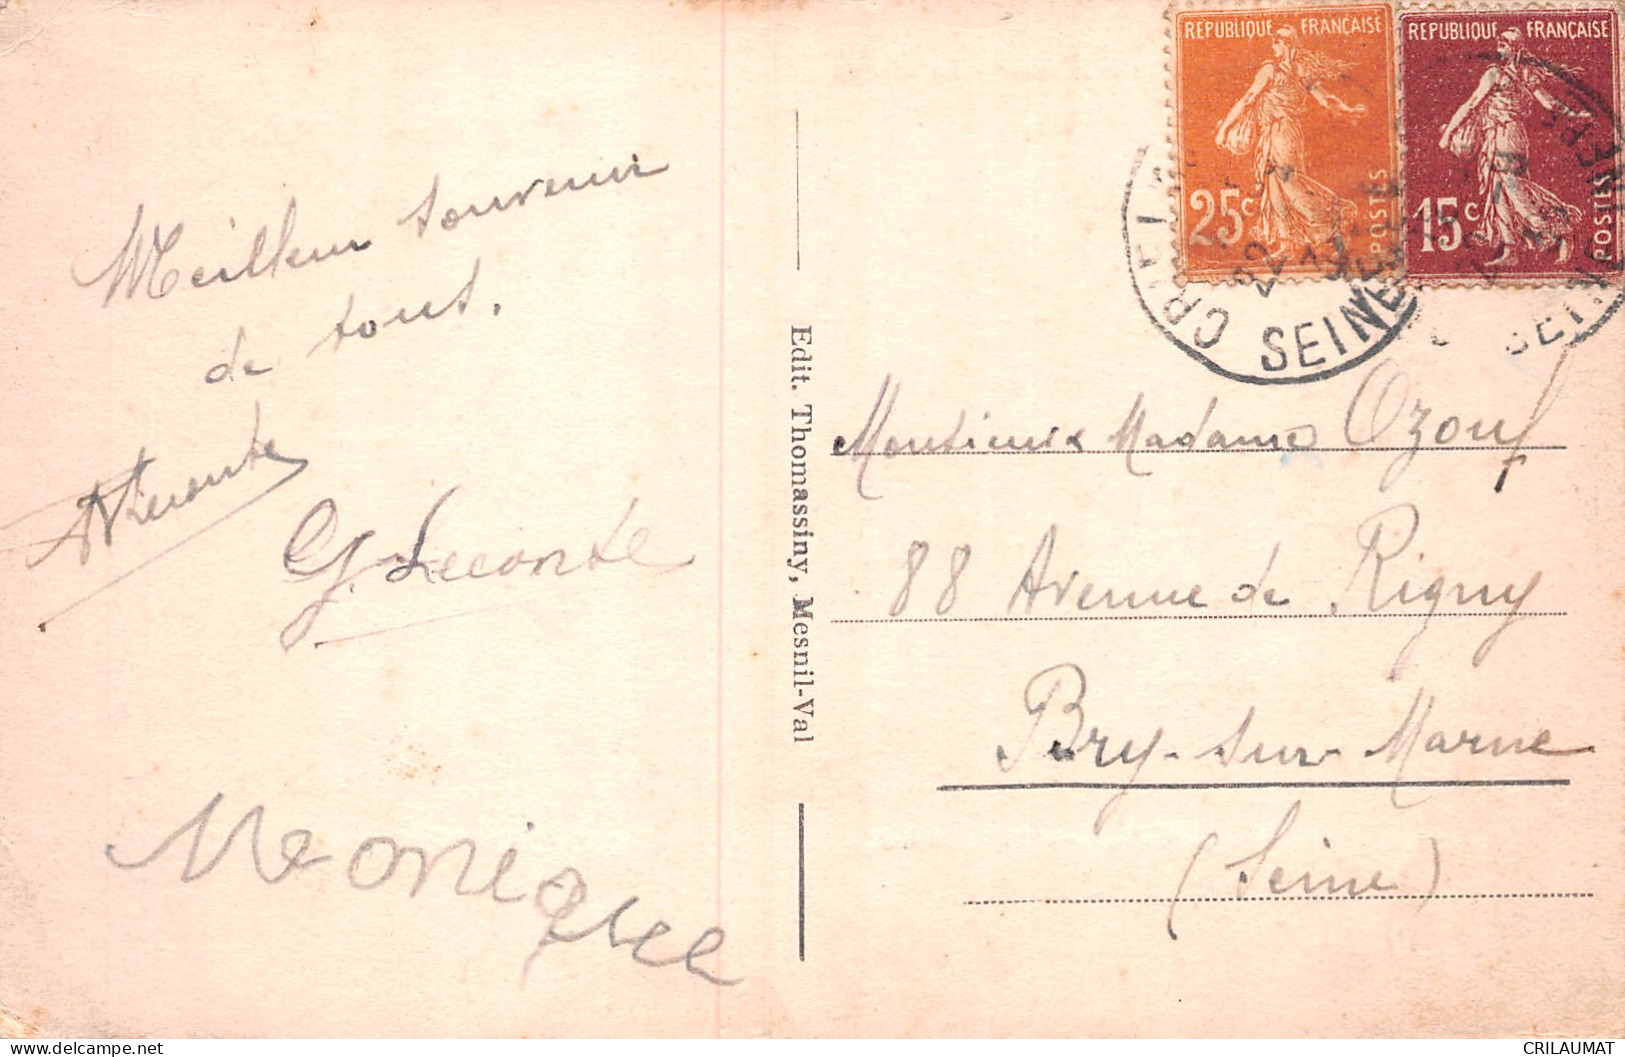 Meilleur souvenir
de tous.
G. Leconte
Monique
Edit. Thomassiny, Mesnil-Val
REPUBLIQUE FRANÇAISE
25c
POSTES
REPUBLIQUE FRANÇAISE
15c
POSTES
CRIEL
22
SEINE
Monsieur & Madame Ozouf
88 Avenue de Rigny
Bry-sur-Marne
(Seine)
CRILAUMAT